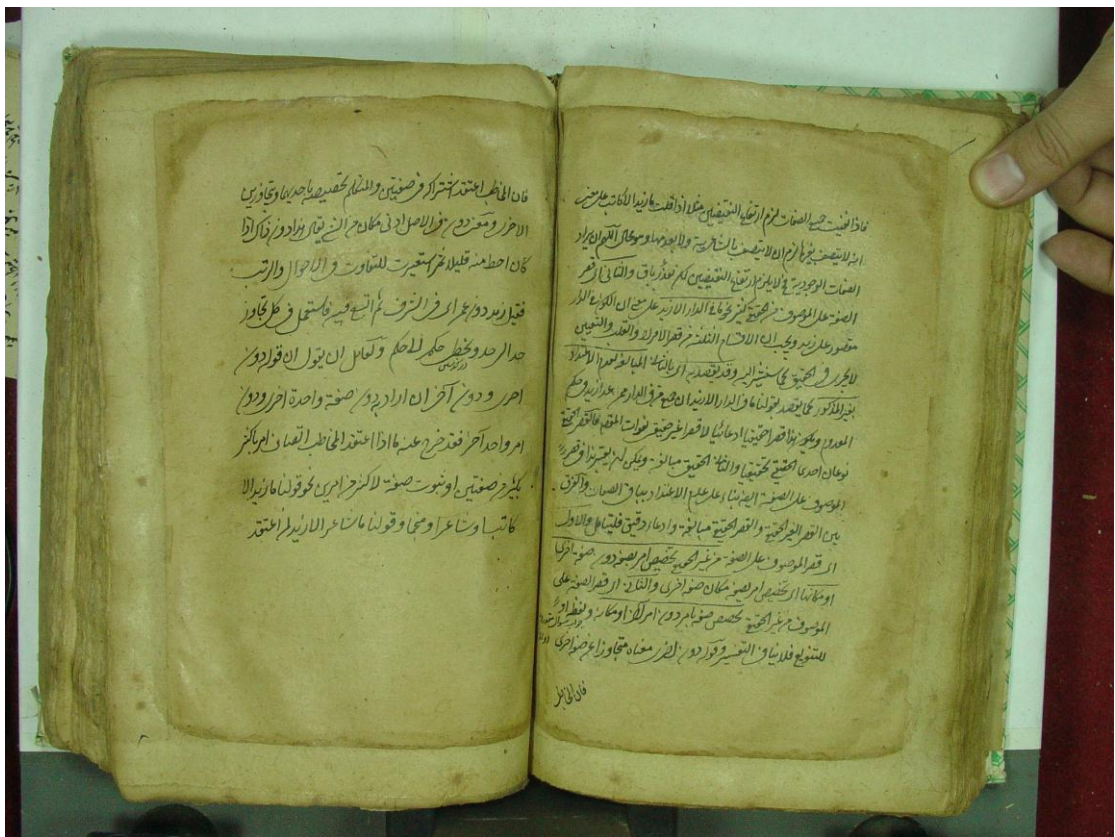 فاذا نفيت جميع الصفات لزم ارتفاع النقيضين مثلا اذا قلت ما زيد الا كاتب على معنى
انه لا يتصف بغيرها لزم ان لا يتصف بالشاعرية ولا بعدمها وهو محال اللهم الا ان يراد
الصفات الوجودية فلا يلزم ارتفاع النقيضين والثانى اى قصر
الصفة على الموصوف من الحقيقى كثير نحو ما فى الدار الا زيد على معنى ان الكون فى الدار
مقصور على زيد ويجب ان الاقسام الثلثة من قصر الافراد والقلب والتعيين
لا يجرى فى الحقيقى كما سنشير اليه وقد يقصد به اى بالثانى المبالغة لعدم الاعتداد
بغير المذكور كما يقصد بقولنا ما فى الدار الا زيد ان جميع من فى الدار ممن عدا زيد فى حكم
المعدوم ويكون هذا قصرا حقيقيا ادعائيا لا قصرا غير حقيقى لفوات المقصود فالقصر الحقيقى
نوعان احدهما الحقيقى تحقيقا والثانى الحقيقى مبالغة ويمكن ان يعتبر هذا فى قصر
الموصوف على الصفة ايضا بناء على عدم الاعتداد بباقى الصفات والفرق
بين القصر الغير الحقيقى والقصر الحقيقى مبالغة وادعاء دقيق فليتامل والاول
اى قصر الموصوف على الصفة من غير الحقيقى تخصيص امر بصفة دون صفة اخرى
او مكانها اى تخصيص امر بصفة مكان صفة اخرى والثانى اى قصر الصفة على
الموصوف من غير الحقيقى تخصيص صفة بامر دون امر آخر او مكانه ولفظ او
للتنويع فلا ينافى التفسير وقوله دون اخرى معناه متجاوزا عن صفة اخرى
فان المخاطب
فان المخاطب اعتقد اشتراكه فى صفتين والمتكلم تخصيصه باحدهما وتجاوز عن
الاخرى ومعنى دون فى الاصل ادنى مكان من الشئ يقال هذا دون ذاك اذا
كان احط منه قليلا ثم استعيرت للتفاوت فى الاحوال والرتب
فقيل زيد دون عمرو اى فى الشرف ثم اتسع فيه فاستعمل فى كل تجاوز
حد الى حد وتخطى حكم الى حكم ولقائل ان يقول ان قوله دون
اخرى ودون آخر ان اراد به دون صفة واحدة اخرى ودون
امر واحد آخر فقد خرج عنه ما اذا اعتقد المخاطب اتصاف امر باكثر
من صفتين او ثبوت صفة لاكثر من امرين نحو قولنا ما زيد الا
كاتب او شاعرا ومنجما وقولنا ما شاعر الا زيد لمن اعتقد